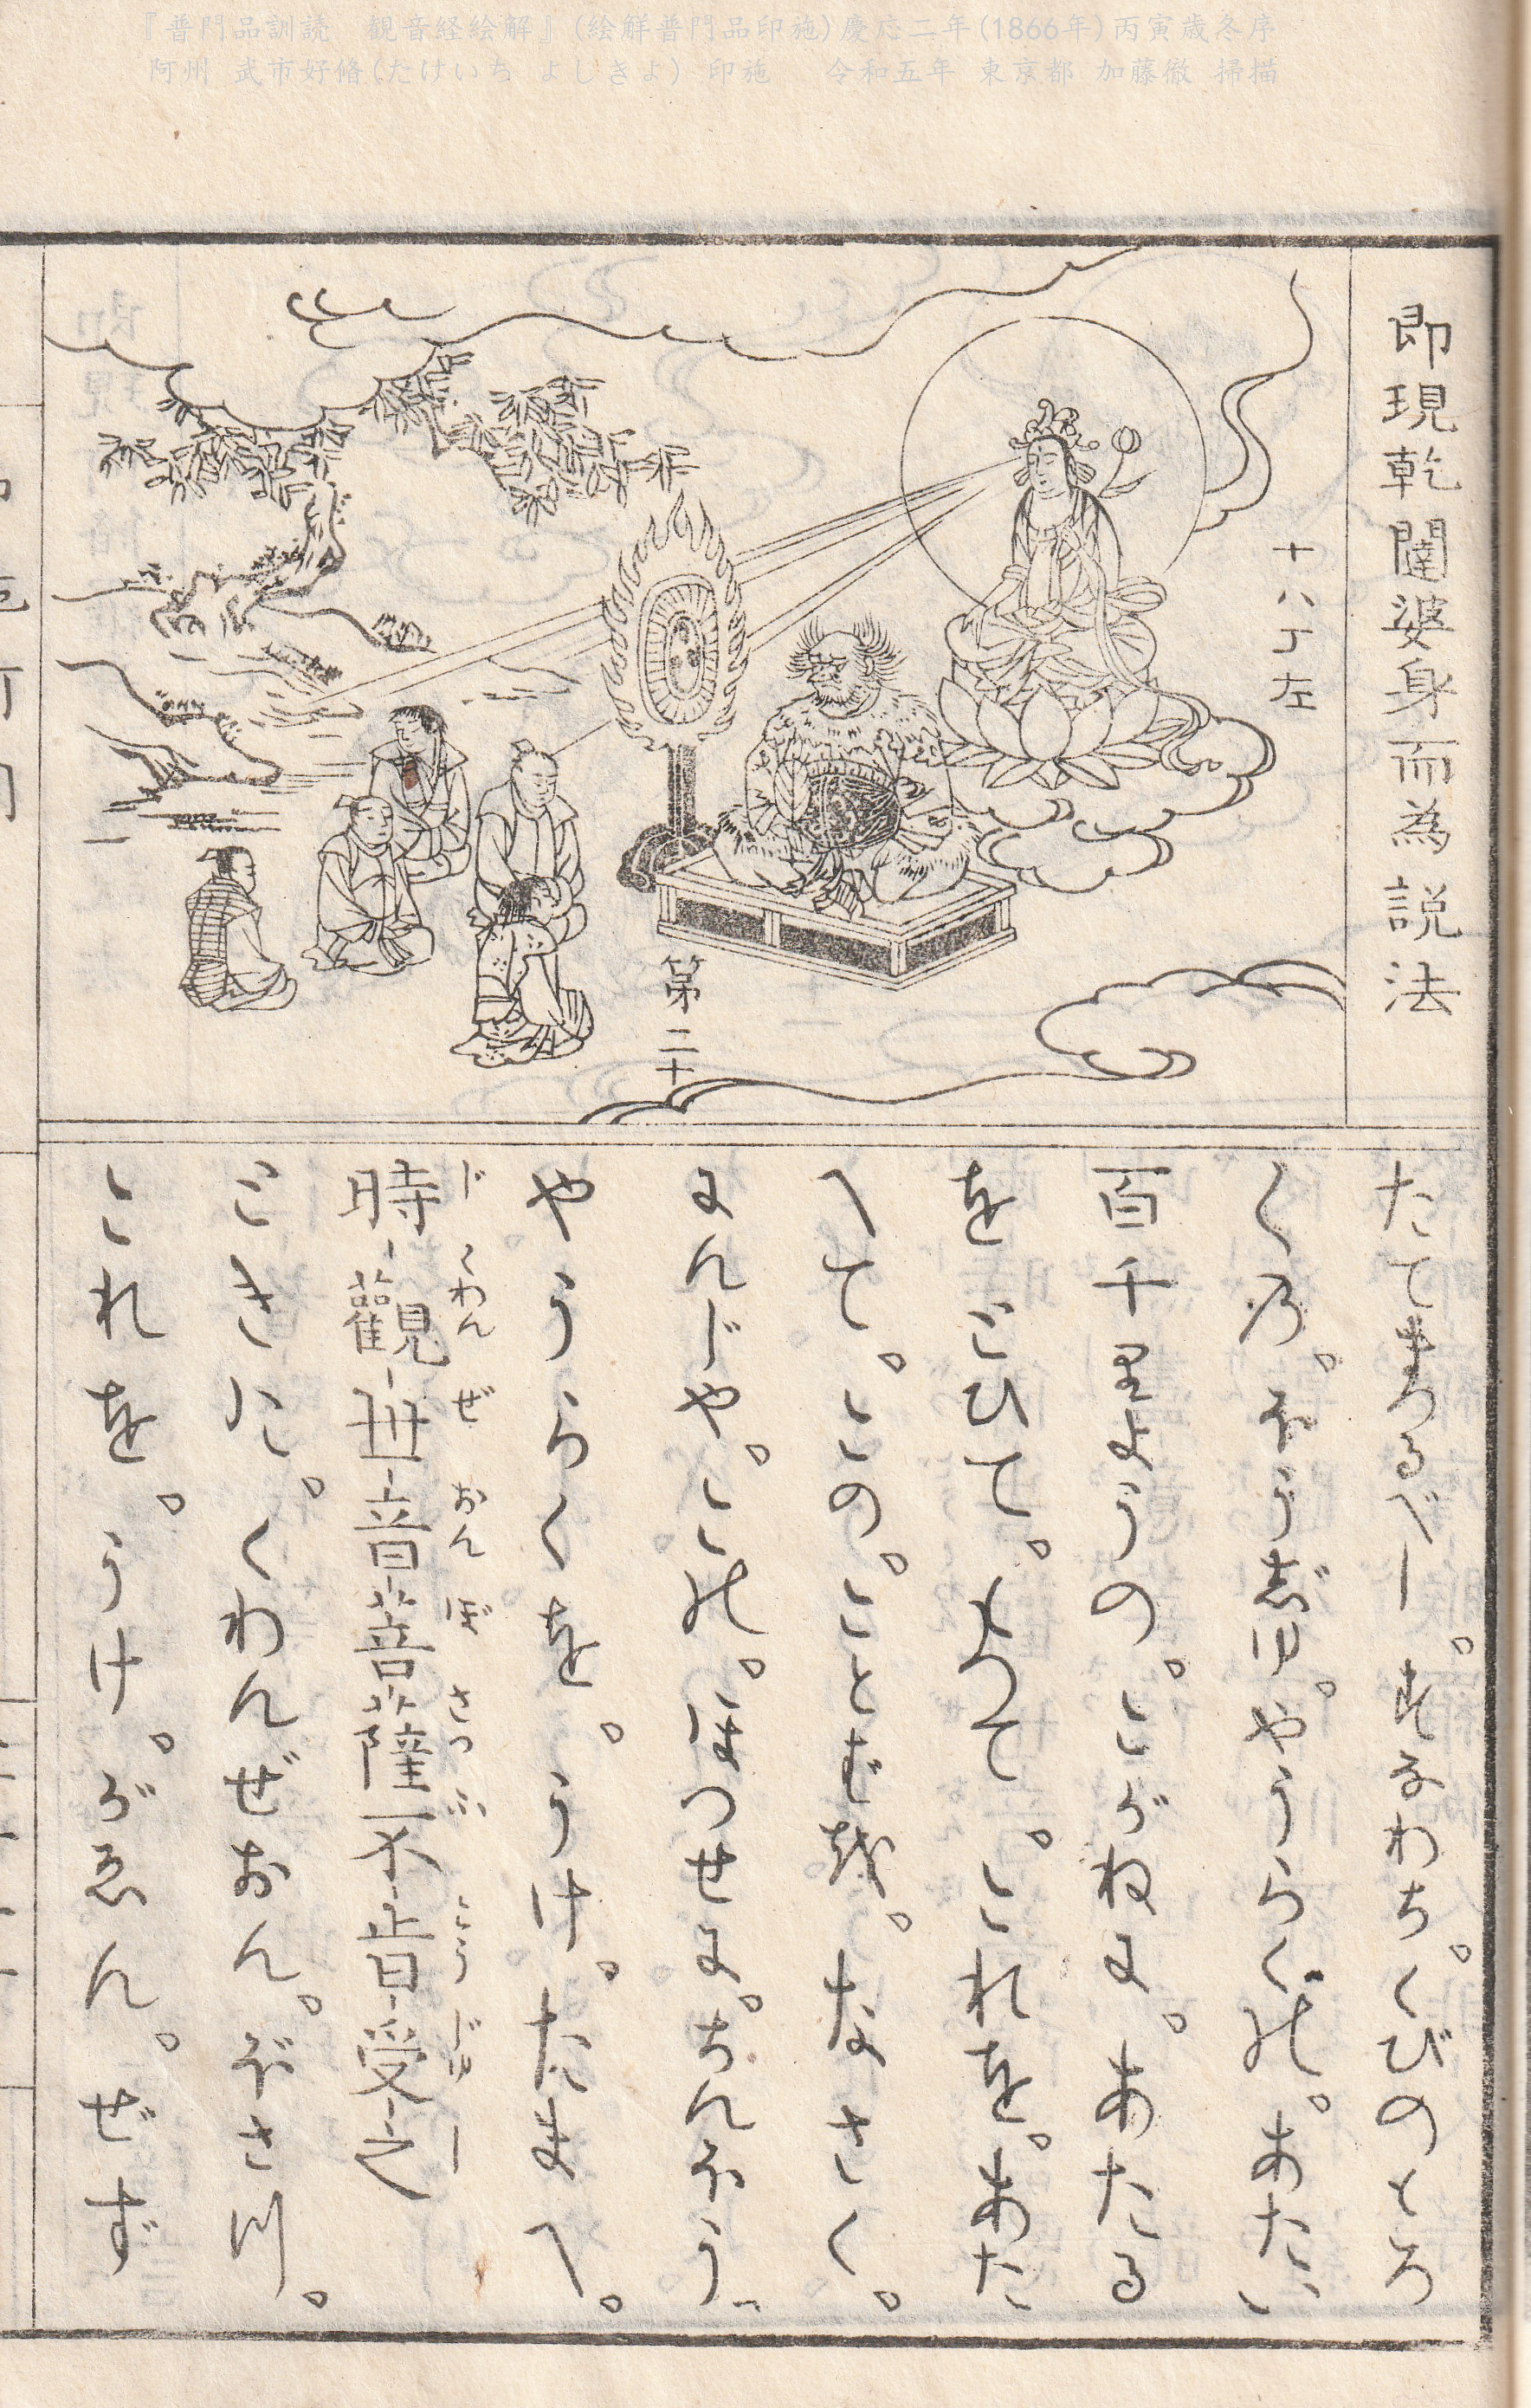 『普門品訓読　観音経絵解』(絵解普門品印施)慶応二年(1866年)丙寅歳冬序
阿州 武市好脩(たけいち よしきよ) 印施　令和五年 東京都 加藤徹 掃描
即現乾闥婆身而為説法
十八丁左
第二十
たてまつるべし。すなわち。くびのもろ
くの。ほうじゆ。やうらくの。あたい
百千りやうの。こがねに。あたる
をとひて。もつて。これを。あた
へて。この。ことばを。なさく。
にんじや。この。ほつせに。ちんぼう
やうらくを。うけ。たまへ。
時觀世音菩薩不肯受之
じくわんぜおんぼさつふこうじゆし
ときに。くわんぜおん。ぼさつ。
これを。うけ。がゑん。ぜず